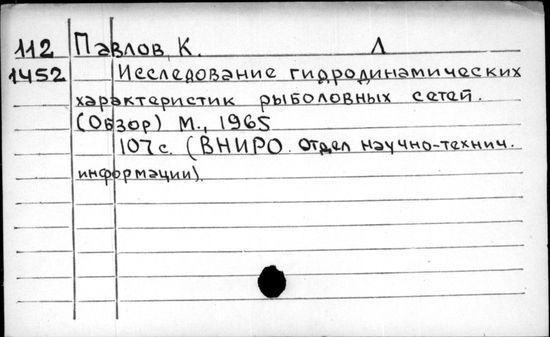 112 Павлов, К. Л
1452 Исследование гидродинамических
характеристик рыболовных сетей.
(Обзор) М., 1965
107с. (ВНИРО. отдел научно-технич.
информации).